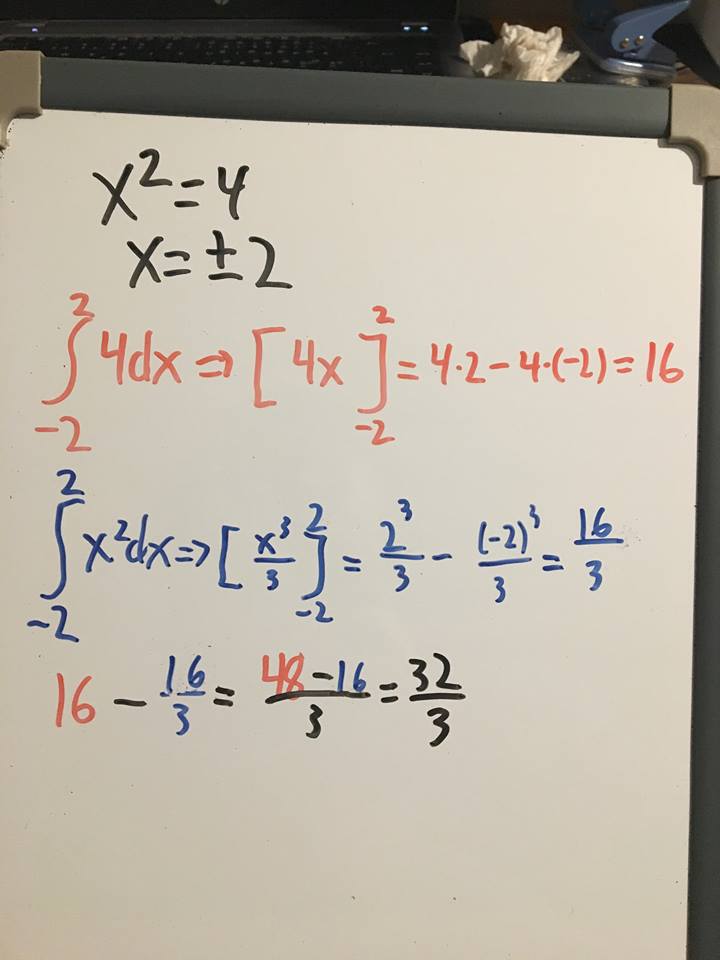 x² = 4
x = ±2
∫₋₂² 4dx ⇒ [4x]₋₂² = 4·2 − 4·(−2) = 16
∫₋₂² x²dx ⇒ [x³/3]₋₂² = 2³/3 − (−2)³/3 = 16/3
16 − 16/3 = (48 − 16)/3 = 32/3